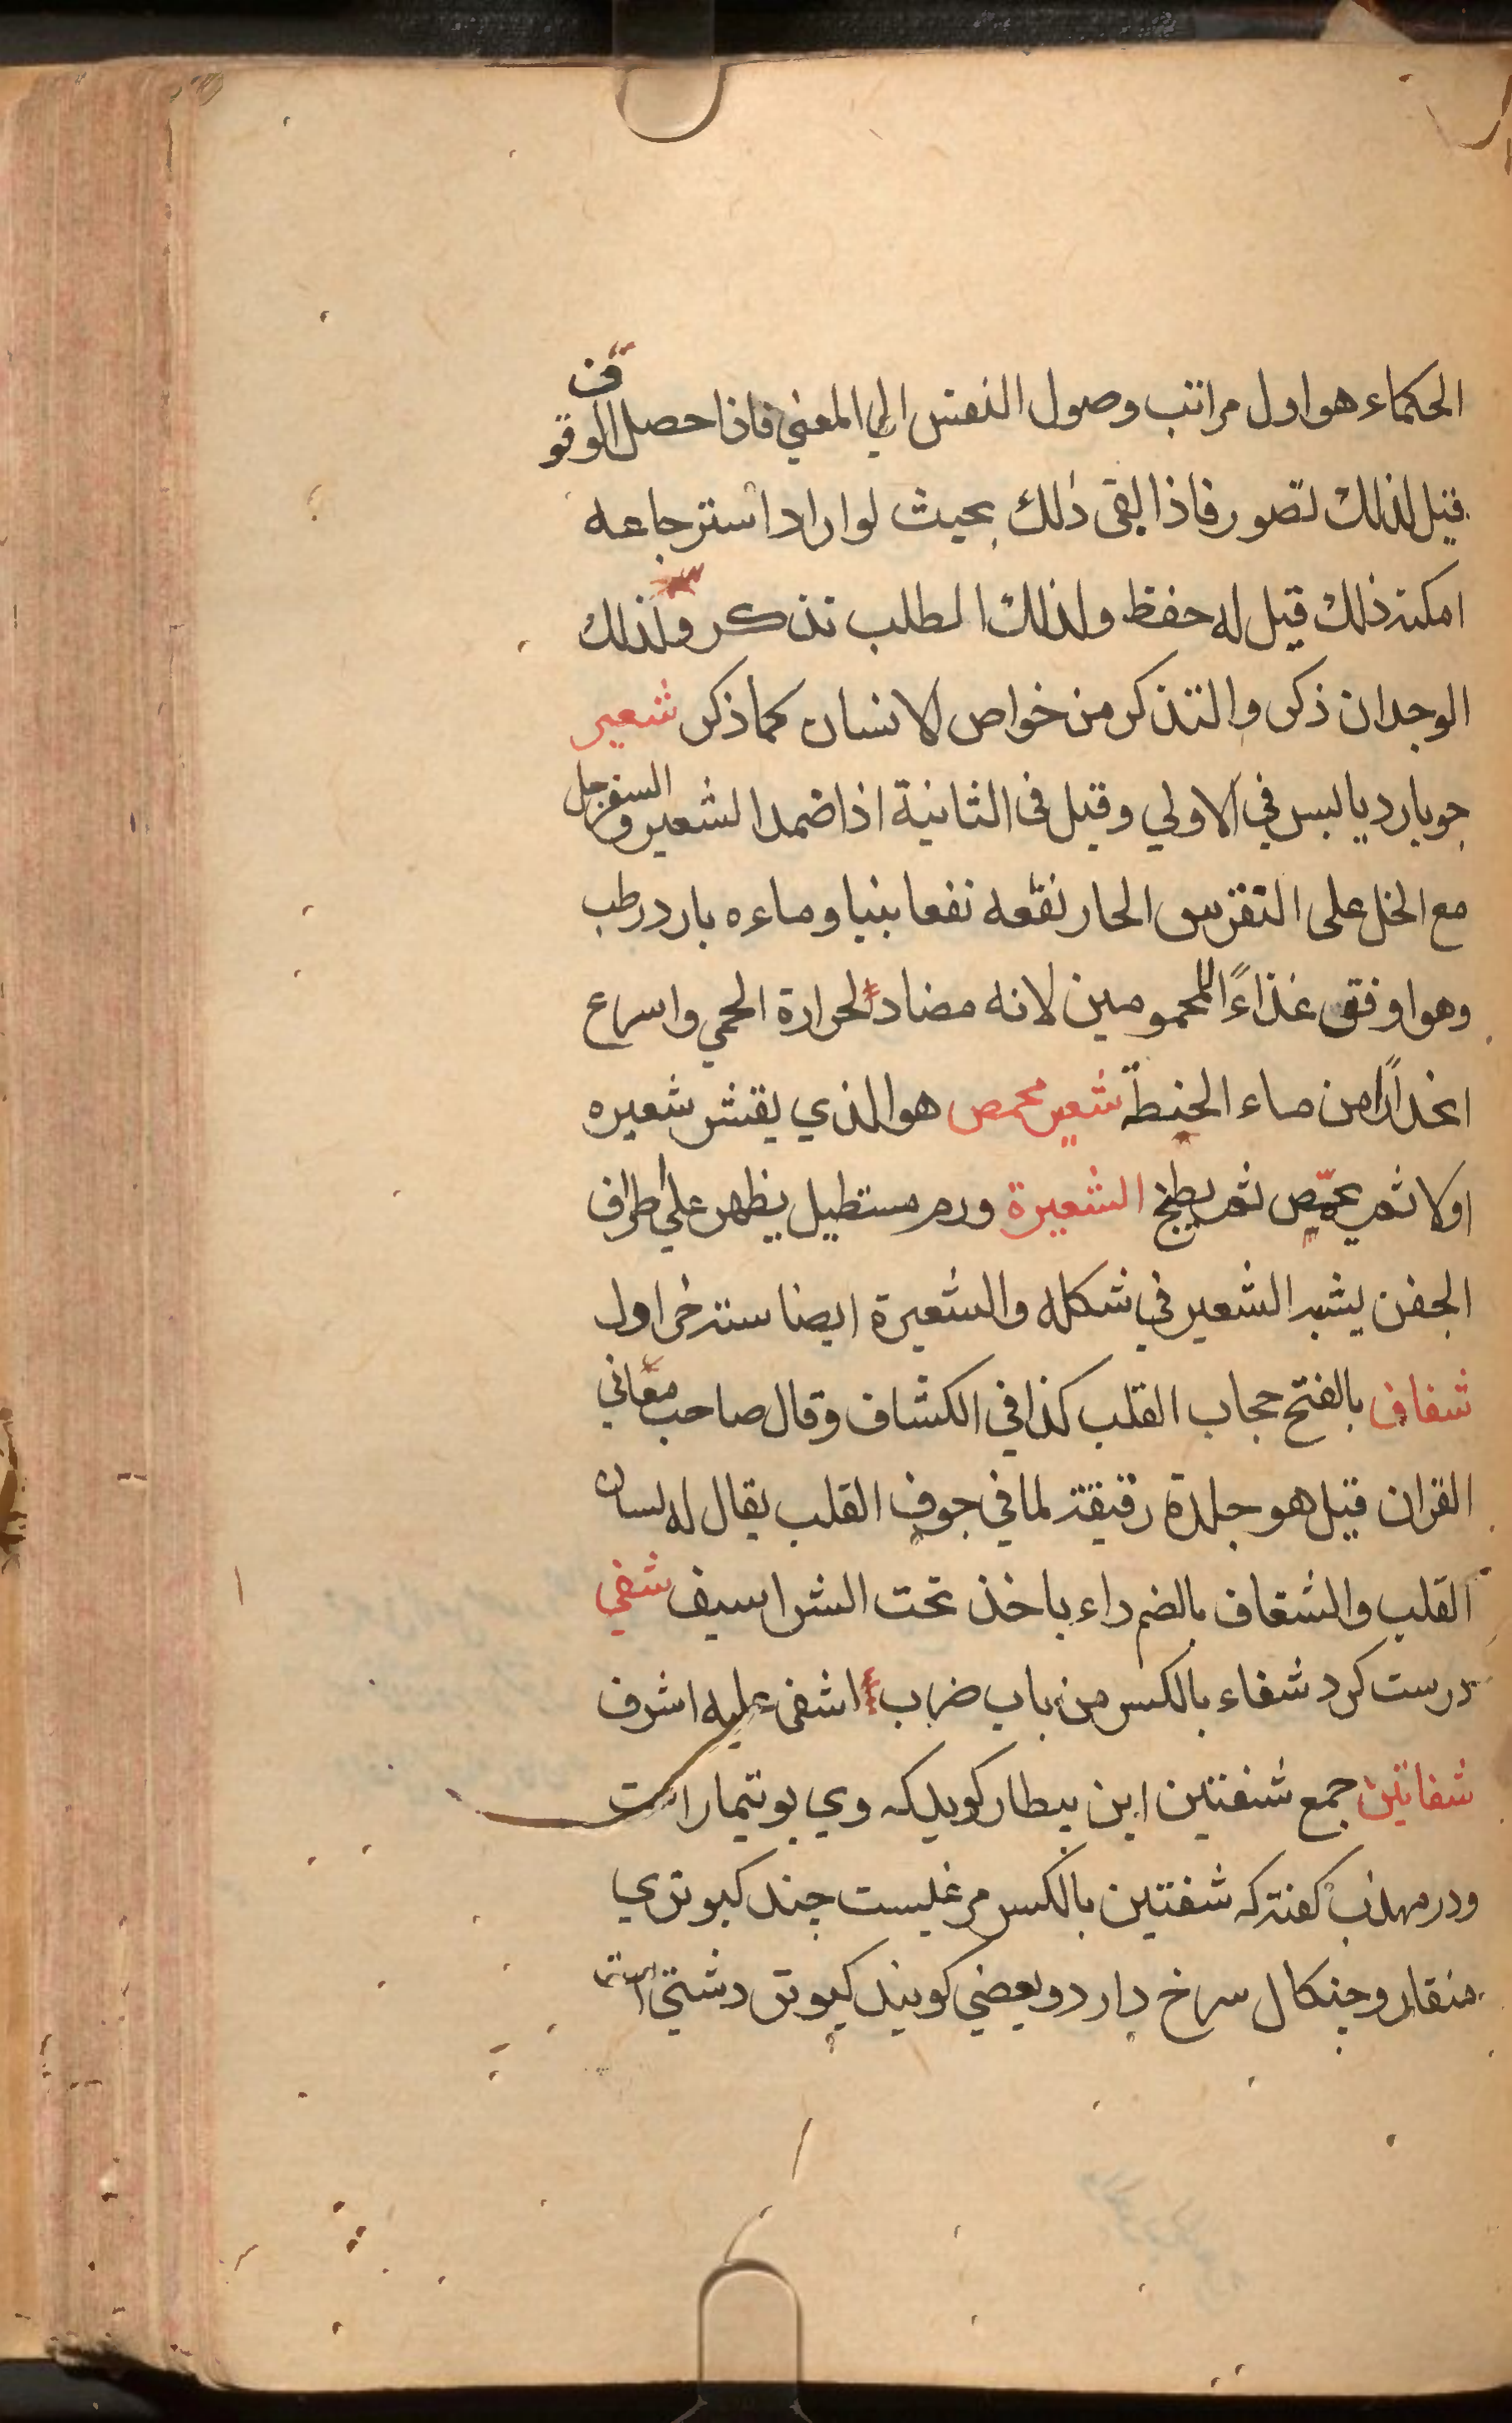 الحكماء هو اول مراتب وصول النفس الي المعني فاذا حصل الوقوف
قيل لذلك تصور فاذا بقى ذلك بحيث لو اراد استرجاعه
امكنه ذلك قيل له حفظ ولذلك الطلب تذكر ولذلك
الوجدان ذكر والتذكر من خواص الانسان كما ذكر شعير
جو بارد يابس في الاولي وقيل في الثانية اذا ضمد الشعير والسفرجل
مع الخل على النقرس الحار نفعه نفعا بنيا وماءه بارد رطب
وهو اوفق غذاءً للمحمومين لانه مضاد لحرارة الحمي واسراع
انحدارًا من ماء الحنطة شعير محمص هو الذي يقشر شعيره
اولا ثم يحمّص ثم يطبخ الشعيرة ورم مستطيل يظهر علي اطراف
الجفن يشبه الشعير في شكله والشعيرة ايضا ستة خراول
شغاف بالفتح حجاب القلب كذا في الكشاف وقال صاحب معاني
القران قيل هو جلدة رقيقة لما في جوف القلب يقال له لسان
القلب والشغاف بالضم داء ياخذ تحت الشراسيف شفي
درست كرد شفاء بالكسر من باب ضرب اشفى عليه اشرف
شفاتين جمع شفنتين ابن بيطار كويد كه وي بوتيمار است
ودر مهذب كفته كه شفنتين بالكسر مرغليست چند كبوتري
منقار وچنكال سرخ دارد وبعضي كويند كبوتر دشتي است